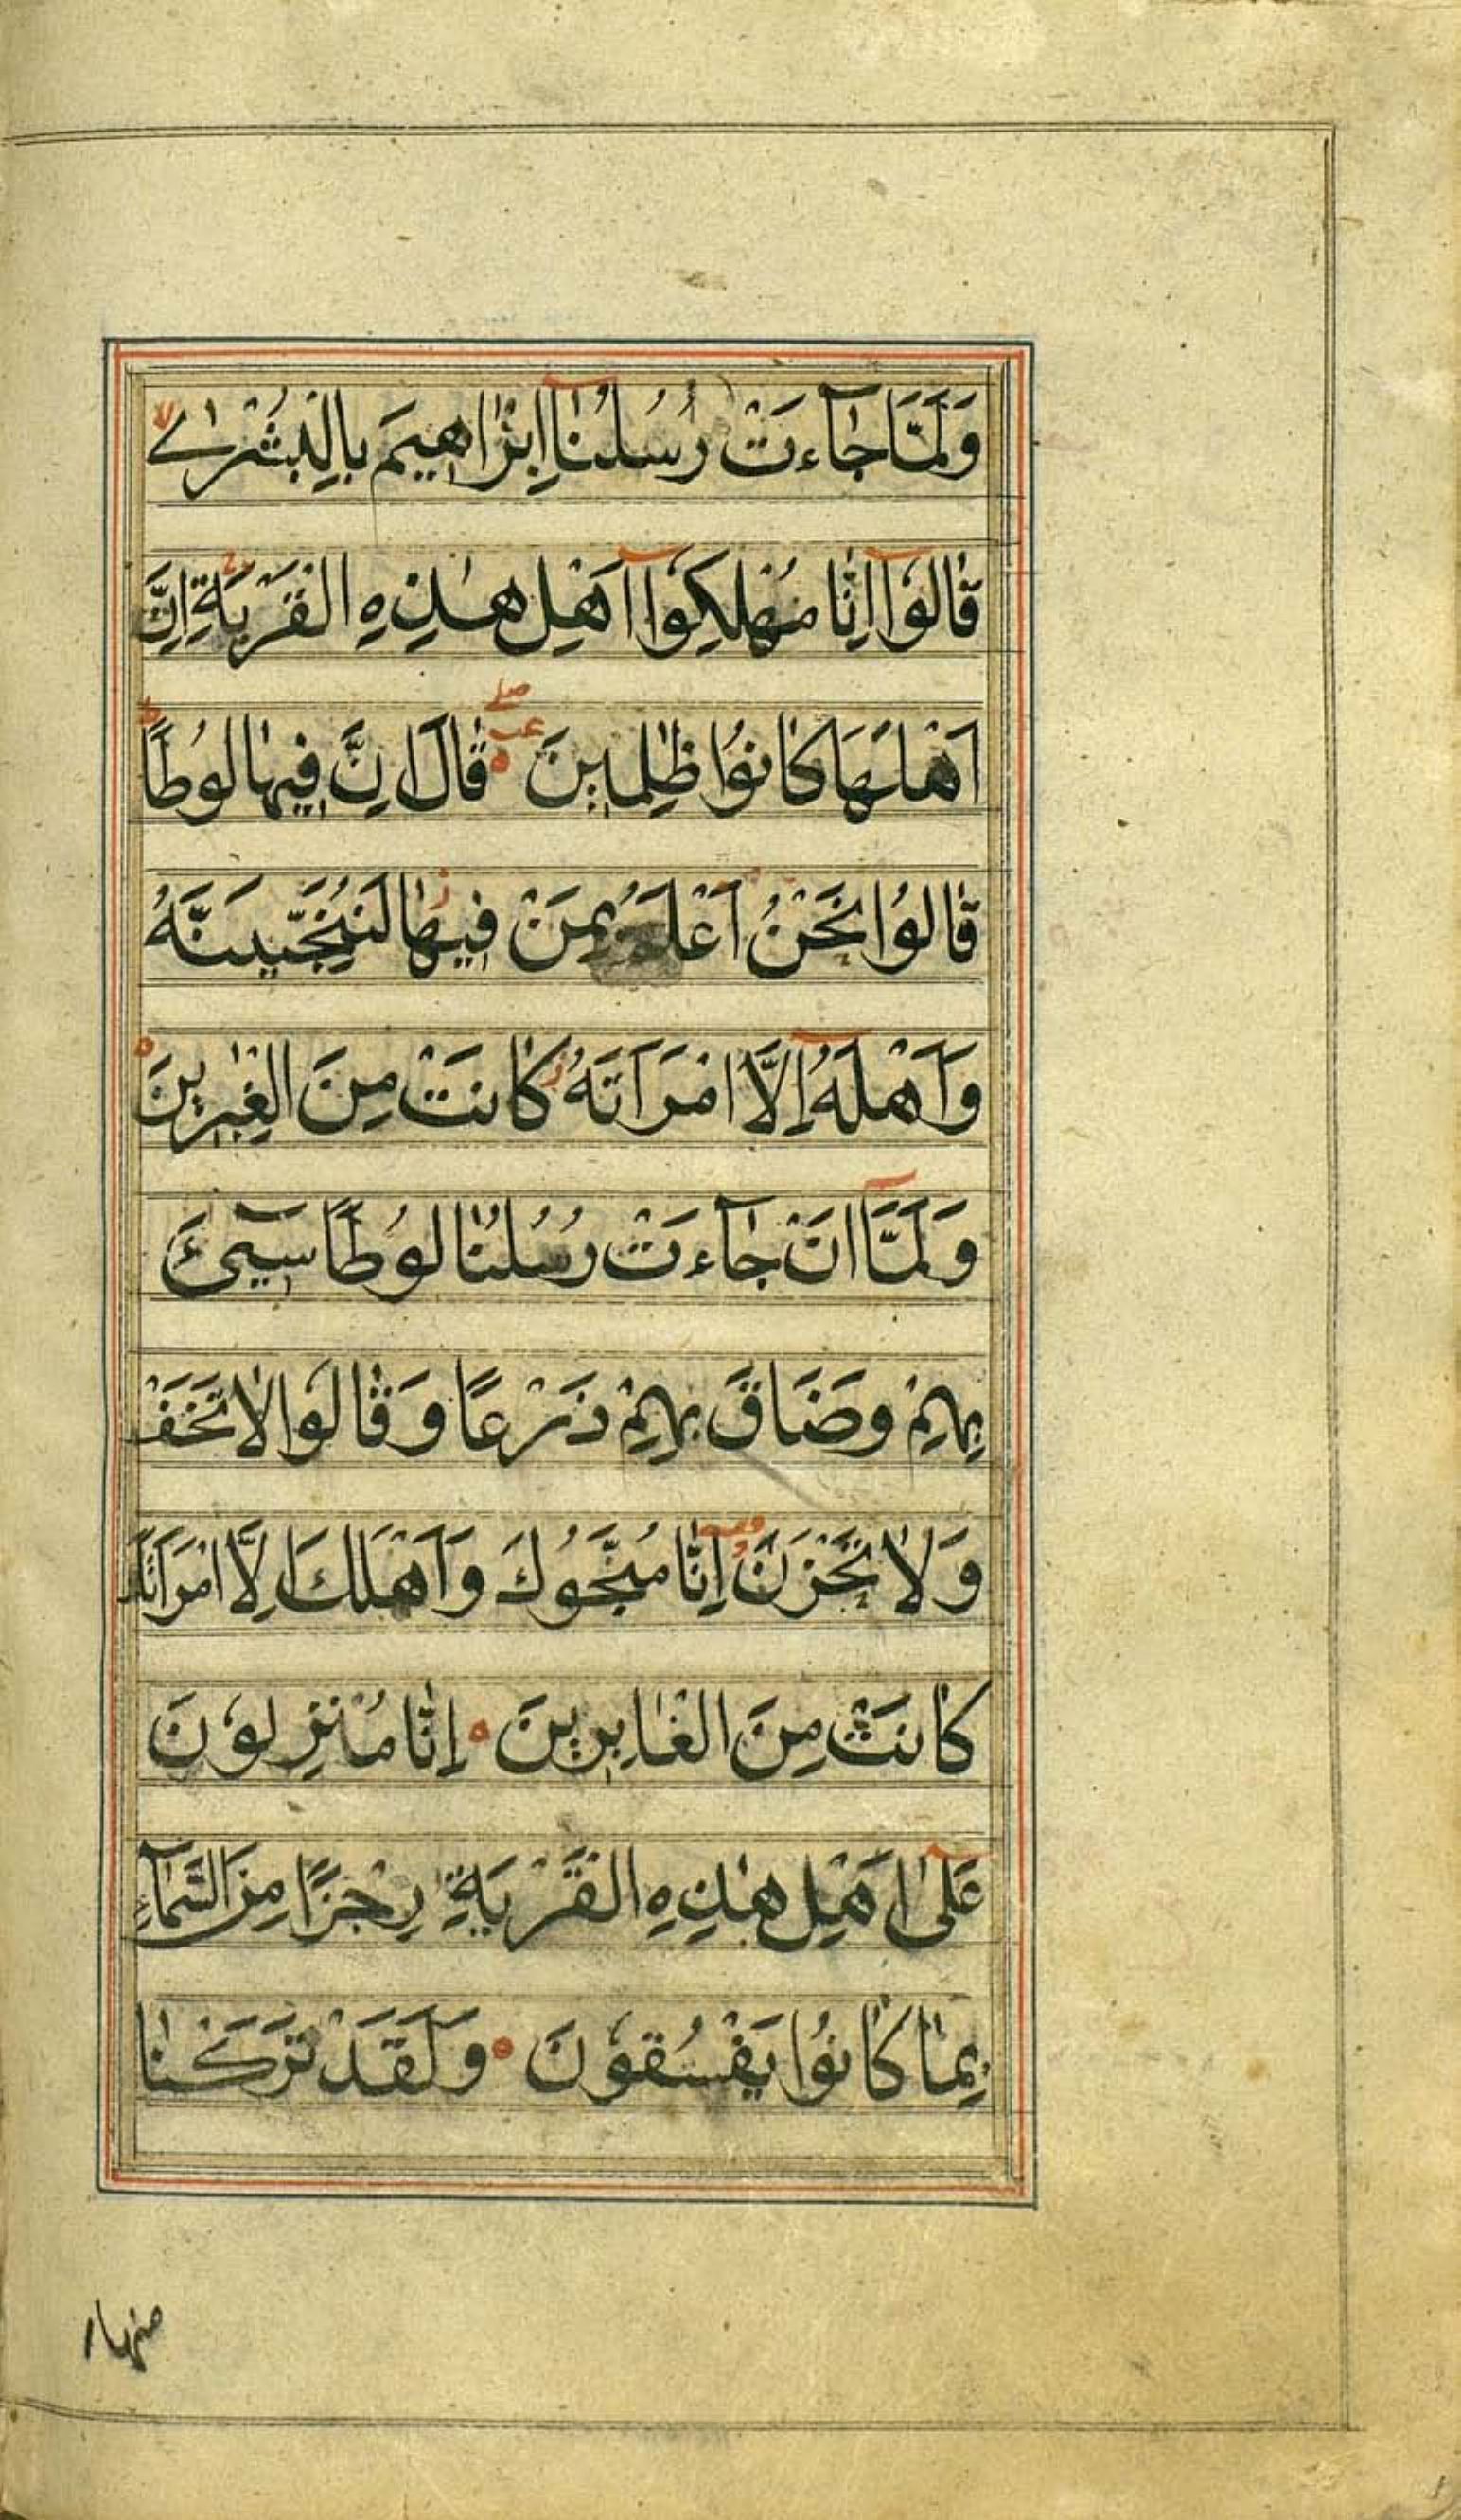 وَلَمَّا جَاءَتْ رُسُلُنَا إِبْرَاهِيمَ بِالْبُشْرٰى
قَالُوا إِنَّا مُهْلِكُوا أَهْلِ هٰذِهِ الْقَرْيَةِ إِنَّ
أَهْلَهَا كَانُوا ظٰلِمِينَ قَالَ إِنَّ فِيهَا لُوطًا
قَالُوا نَحْنُ أَعْلَمُ بِمَنْ فِيهَا لَنُنَجِّيَنَّهُ
وَأَهْلَهُ إِلَّا امْرَأَتَهُ كَانَتْ مِنَ الْغٰبِرِينَ
وَلَمَّا أَنْ جَاءَتْ رُسُلُنَا لُوطًا سِيءَ
بِهِمْ وَضَاقَ بِهِمْ ذَرْعًا وَقَالُوا لَا تَخَفْ
وَلَا تَحْزَنْ إِنَّا مُنَجُّوكَ وَأَهْلَكَ إِلَّا امْرَأَتَكَ
كَانَتْ مِنَ الْغَابِرِينَ إِنَّا مُنْزِلُونَ
عَلٰى أَهْلِ هٰذِهِ الْقَرْيَةِ رِجْزًا مِنَ السَّمَاءِ
بِمَا كَانُوا يَفْسُقُونَ وَلَقَدْ تَرَكْنَا
منها